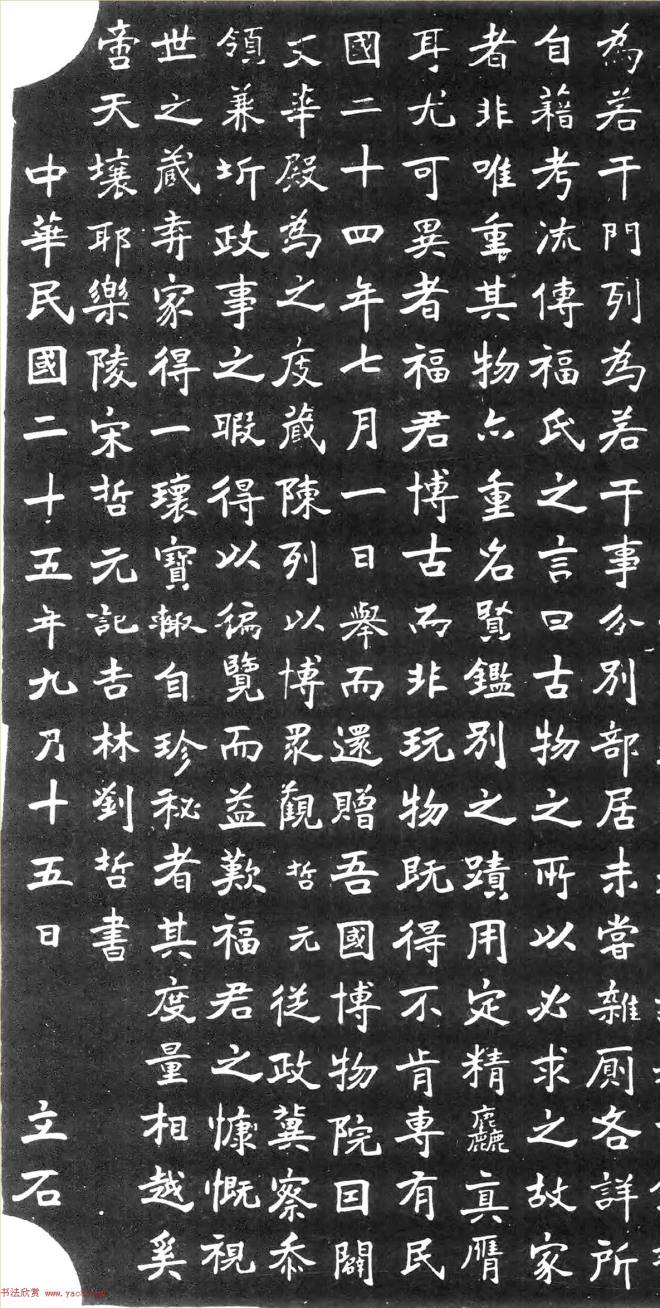 為若干門列為若干事分別部居未嘗雜厠各詳所
自藉考流傳福氏之言曰古物之所以必求之故家
者非唯重其物亦重名賢鑑別之蹟用定精麤真贗
耳尤可異者福君博古而非玩物既得不肯專有民
國二十四年七月一日舉而還贈吾國博物院因闢
文華殿為之庋藏陳列以博眾觀哲元從政冀察忝
領兼圻政事之暇得以徧覽而益歎福君之慷慨視
世之藏弆家得一瓌寶輒自珍秘者其度量相越奚
啻天壤耶樂陵宋哲元記吉林劉哲書
中華民國二十五年九月十五日 立石
书法欣赏